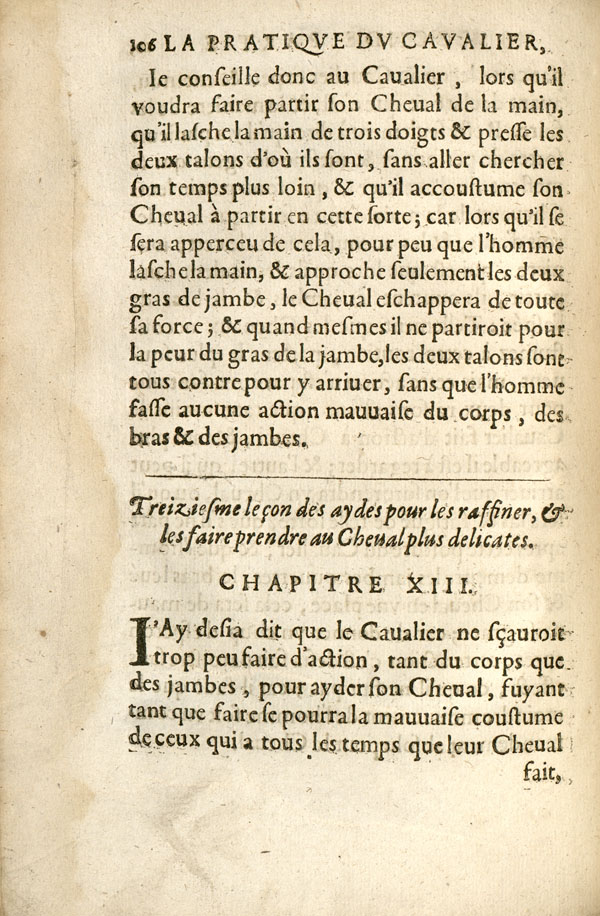 106 LA PRATIQVE DV CAVALIER,
Ie conſeille donc au Caualier , lors qu'il
voudra faire partir ſon Cheual de la main,
qu'il laſche la main de trois doigts & preſſe les
deux talons d'où ils ſont, ſans aller chercher
ſon temps plus loin , & qu'il accouſtume ſon
Cheual à partir en cette ſorte ; car lors qu'il ſe
ſera apperceu de cela, pour peu que l'homme
laſche la main, & approche ſeulement les deux
gras de jambe, le Cheual eſchappera de toute
ſa force ; & quand meſmes il ne partiroit pour
la peur du gras de la jambe, les deux talons ſont
tous contre pour y arriuer, ſans que l'homme
faſſe aucune action mauuaiſe du corps , des
bras & des jambes.
Treizieſme leçon des aydes pour les raffiner, &
les faire prendre au Cheual plus delicates.
CHAPITRE XIII.
I'Ay deſia dit que le Caualier ne ſçauroit
trop peu faire d'action , tant du corps que
des jambes , pour ayder ſon Cheual, fuyant
tant que faire ſe pourra la mauuaiſe couſtume
de ceux qui a tous les temps que leur Cheual
fait,